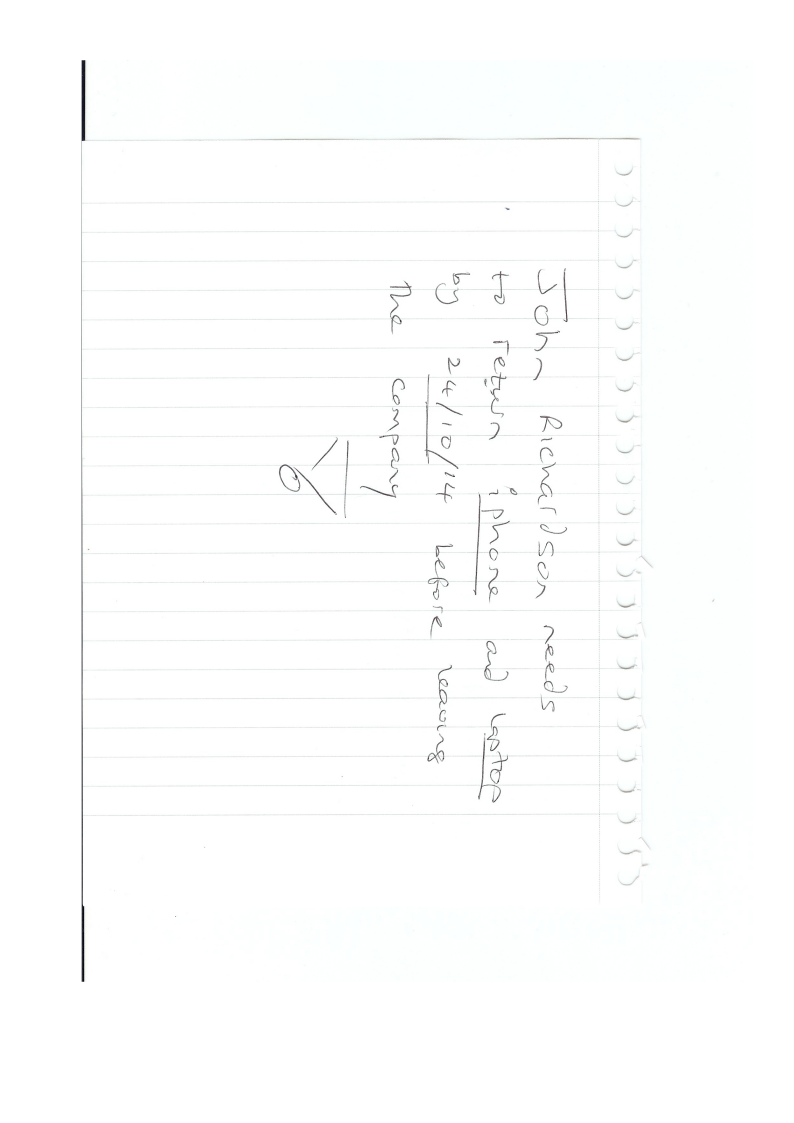 John Richardson needs
to return iphone and laptop
by 24/10/14 before leaving
The company